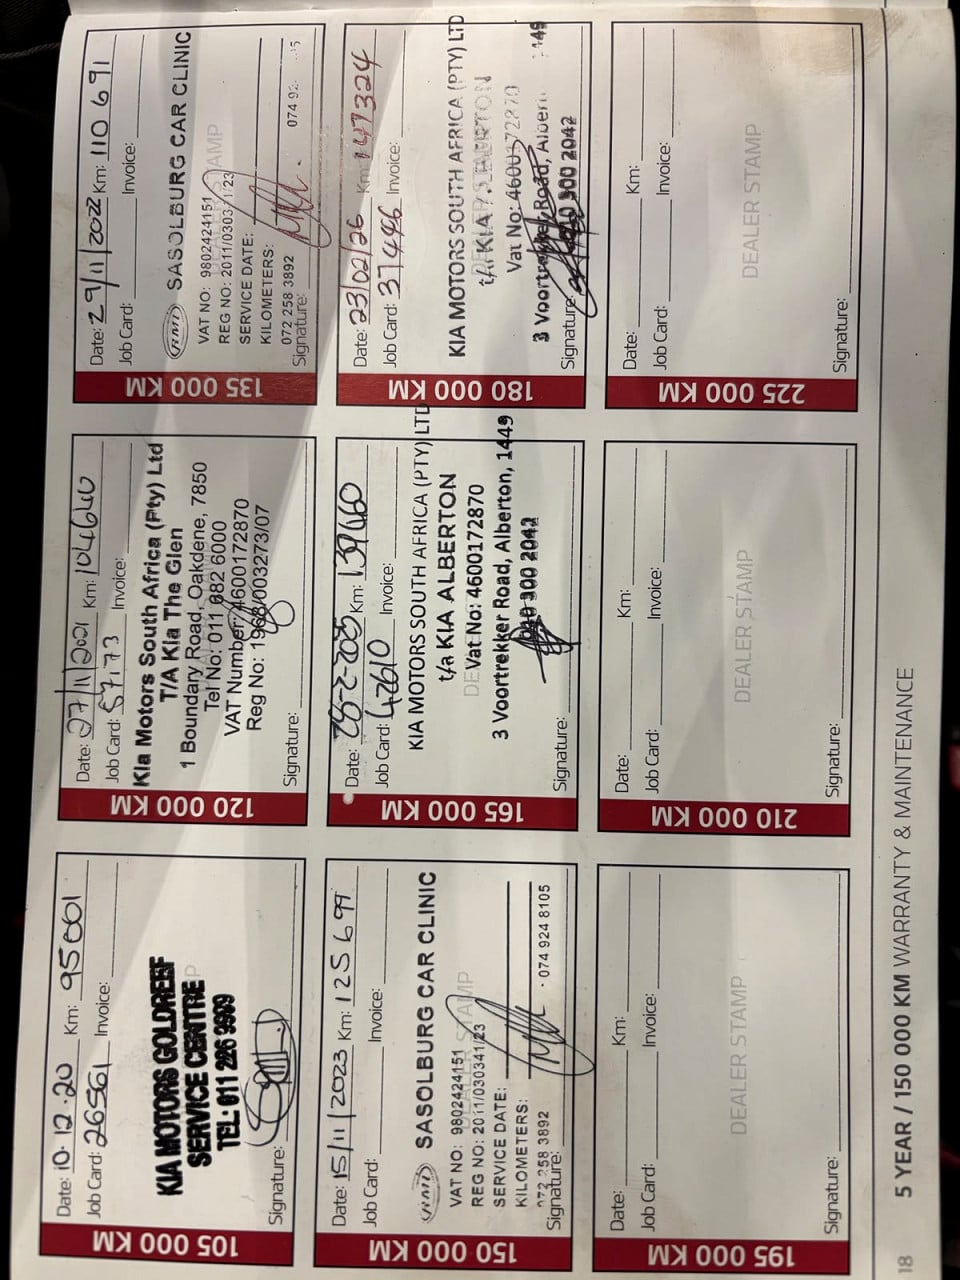 105 000 KM
Date: 10.12.20 Km: 95661
Job Card: 26561 Invoice:
KIA MOTORS GOLDREEF
SERVICE CENTRE
TEL: 011 226 9999
Signature:
120 000 KM
Date: 27/11/2021 Km: 104640
Job Card: 57173 Invoice:
Kia Motors South Africa (Pty) Ltd
T/A Kia The Glen
1 Boundary Road, Oakdene, 7850
Tel No: 011 682 6000
VAT Number: 4600172870
Reg No: 1968/003273/07
Signature:
135 000 KM
Date: 29/11/2022 Km: 110 691
Job Card: Invoice:
RMI SASOLBURG CAR CLINIC
DEALER STAMP
VAT NO: 9802424151
REG NO: 2011/0303 1/23
SERVICE DATE:
KILOMETERS:
072 258 3892 074 92
Signature:
150 000 KM
Date: 15/11/2023 Km: 125 697
Job Card: Invoice:
RMI SASOLBURG CAR CLINIC
DEALER STAMP
VAT NO: 9802424151
REG NO: 2011/030341/23
SERVICE DATE:
KILOMETERS:
072 258 3892 · 074 924 8105
Signature:
165 000 KM
Date: Km: 139460
Job Card: 42610 Invoice:
KIA MOTORS SOUTH AFRICA (PTY) LTD
t/a KIA ALBERTON
Vat No: 4600172870
3 Voortrekker Road, Alberton, 1449
010 300 2042
Signature:
180 000 KM
Date: 23/02/26 Km: 147324
Job Card: 37446 Invoice:
KIA MOTORS SOUTH AFRICA (PTY) LTD
t/a KIA
DEALER STAMP
Vat No: 4600172870
3 Voortrekker Road, Alberton
010 300 2042
Signature:
195 000 KM
Date: Km:
Job Card: Invoice:
DEALER STAMP
Signature:
210 000 KM
Date: Km:
Job Card: Invoice:
DEALER STAMP
Signature:
225 000 KM
Date: Km:
Job Card: Invoice:
DEALER STAMP
Signature:
18 5 YEAR / 150 000 KM WARRANTY & MAINTENANCE